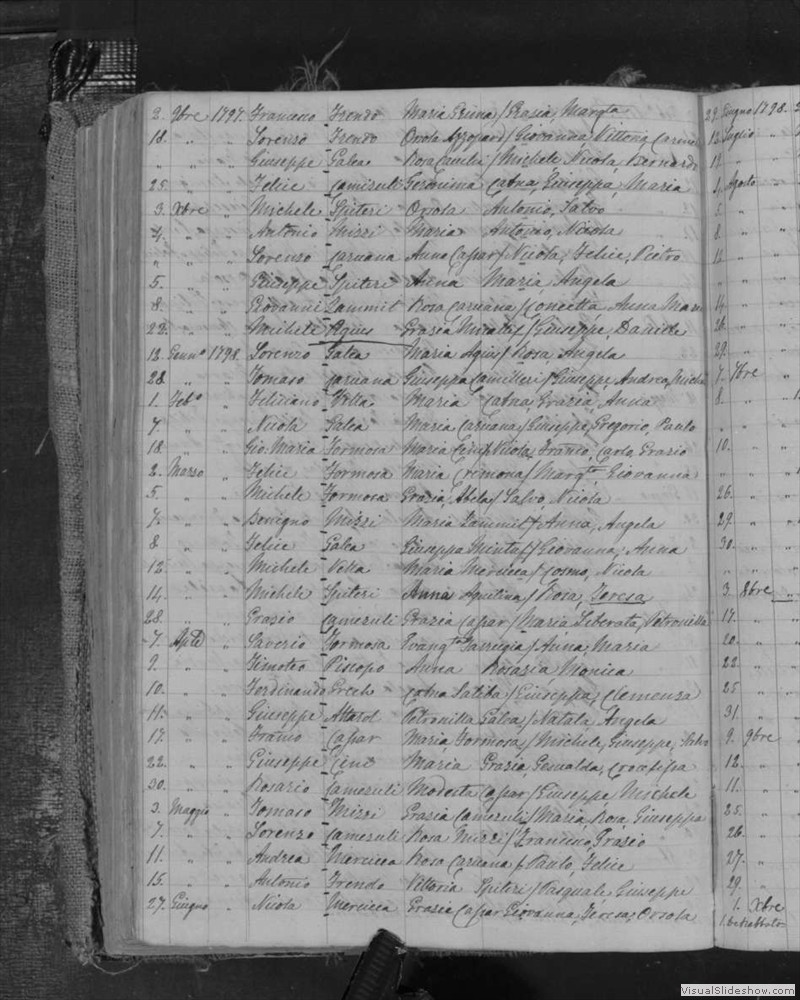 2. 9bre 1797. Franceso Frendo Maria Grima / Grazia, Margta
18. " " Lorenzo Frendo Orsola Azzopard / Giovanna, Vittoria, Carmela
" " " Giuseppe Galea Rosa / Michele, Nicola, Bernardo
25. " " Felice Camizuli Geronima Catna, Giuseppa, Maria
3. Xbre " Michele Spiteri Orsola Antonio, Salvo
4. " " Antonio Mizzi Maria Antonio, Nicola
" " " Lorenzo Caruana Anna Capar / Nicola, Felice, Pietro
5. " " Giuseppe Spiteri Anna Maria, Angela
8. " " Giovanni Zammit Rosa Caruana / Concetta, Anna Maria
22. " " Michele Agius Grazia / Giuseppe, Davide
12. Gennº 1798. Lorenzo Galea Maria Agius / Rosa Angela
28. " " Tomaso Caruana Giuseppa Camilleri / Giuseppe, Andrea, Michele
1. Febº " Feliciano Vella Maria Catna, Grazia, Anna
7. " " Nicola Galea Maria Caruana / Giuseppe, Gregorio, Paulo
18. " " Gio: Maria Formosa Maria / Nicola, Franco, Carlo, Grazio
2. Marzo " Felice Formosa Maria Cremona / Margta, Giovanna
5. " " Michele Formosa Grazia Abela / Salvo, Nicola
7. " " Benigno Mizzi Maria Zammit / Anna, Angela
8 " " Felice Galea Giuseppa / Giovanna, Anna
12. " " Michele Vella Maria Mercieca / Cosmo, Nicola
14. " " Michele Spiteri Anna Agostina / Rosa, Teresa
28. " " Grazio Camezuli Grazia Capar / Maria Liberata, Petronilla
7. Aple " Saverio Formosa Evangta Farrugia / Anna, Maria
9. " " Timoteo Piscopo Anna Rosaria, Monica
10. " " Ferdinando Grech Catna Saliba / Giuseppa, Clemenza
11. " " Giuseppe Attard Petronilla Galea / Natala, Angela
17. " " Franco Capar Maria Formosa / Michele, Giuseppe, Salvo
22. " " Giuseppe Cini Maria Grazia, Gesualda, Crocefissa
30. " " Rosario Camezuli Modesta Capar / Giuseppe, Michele
3. Maggio " Tomaso Mizzi Grazia Camezuli / Maria, Rosa, Giuseppa
7. " " Lorenzo Camezuli Rosa Mizzi / Francesco, Grazio
11. " " Andrea Mercieca Rosa Caruana / Paulo, Felice
15. " " Antonio Frendo Vittoria Spiteri / Pasquale, Giuseppe
27. Giugno " Nicola Mercieca Grazia Capar Giovanna, Teresa, Orsola
29. Giugno 1798.
12. Luglio "
17. "
1. Agosto "
5. "
8. "
11. "
14. "
26. "
29. "
7. 7bre "
8. "
10. "
" "
26. "
29. "
30. "
" "
3. 8bre "
17. "
20. "
22. "
25 "
31. "
9. 9bre
12. "
11. "
25. "
26. "
27. "
29. "
1. Xbre
VisualSlideshow.com